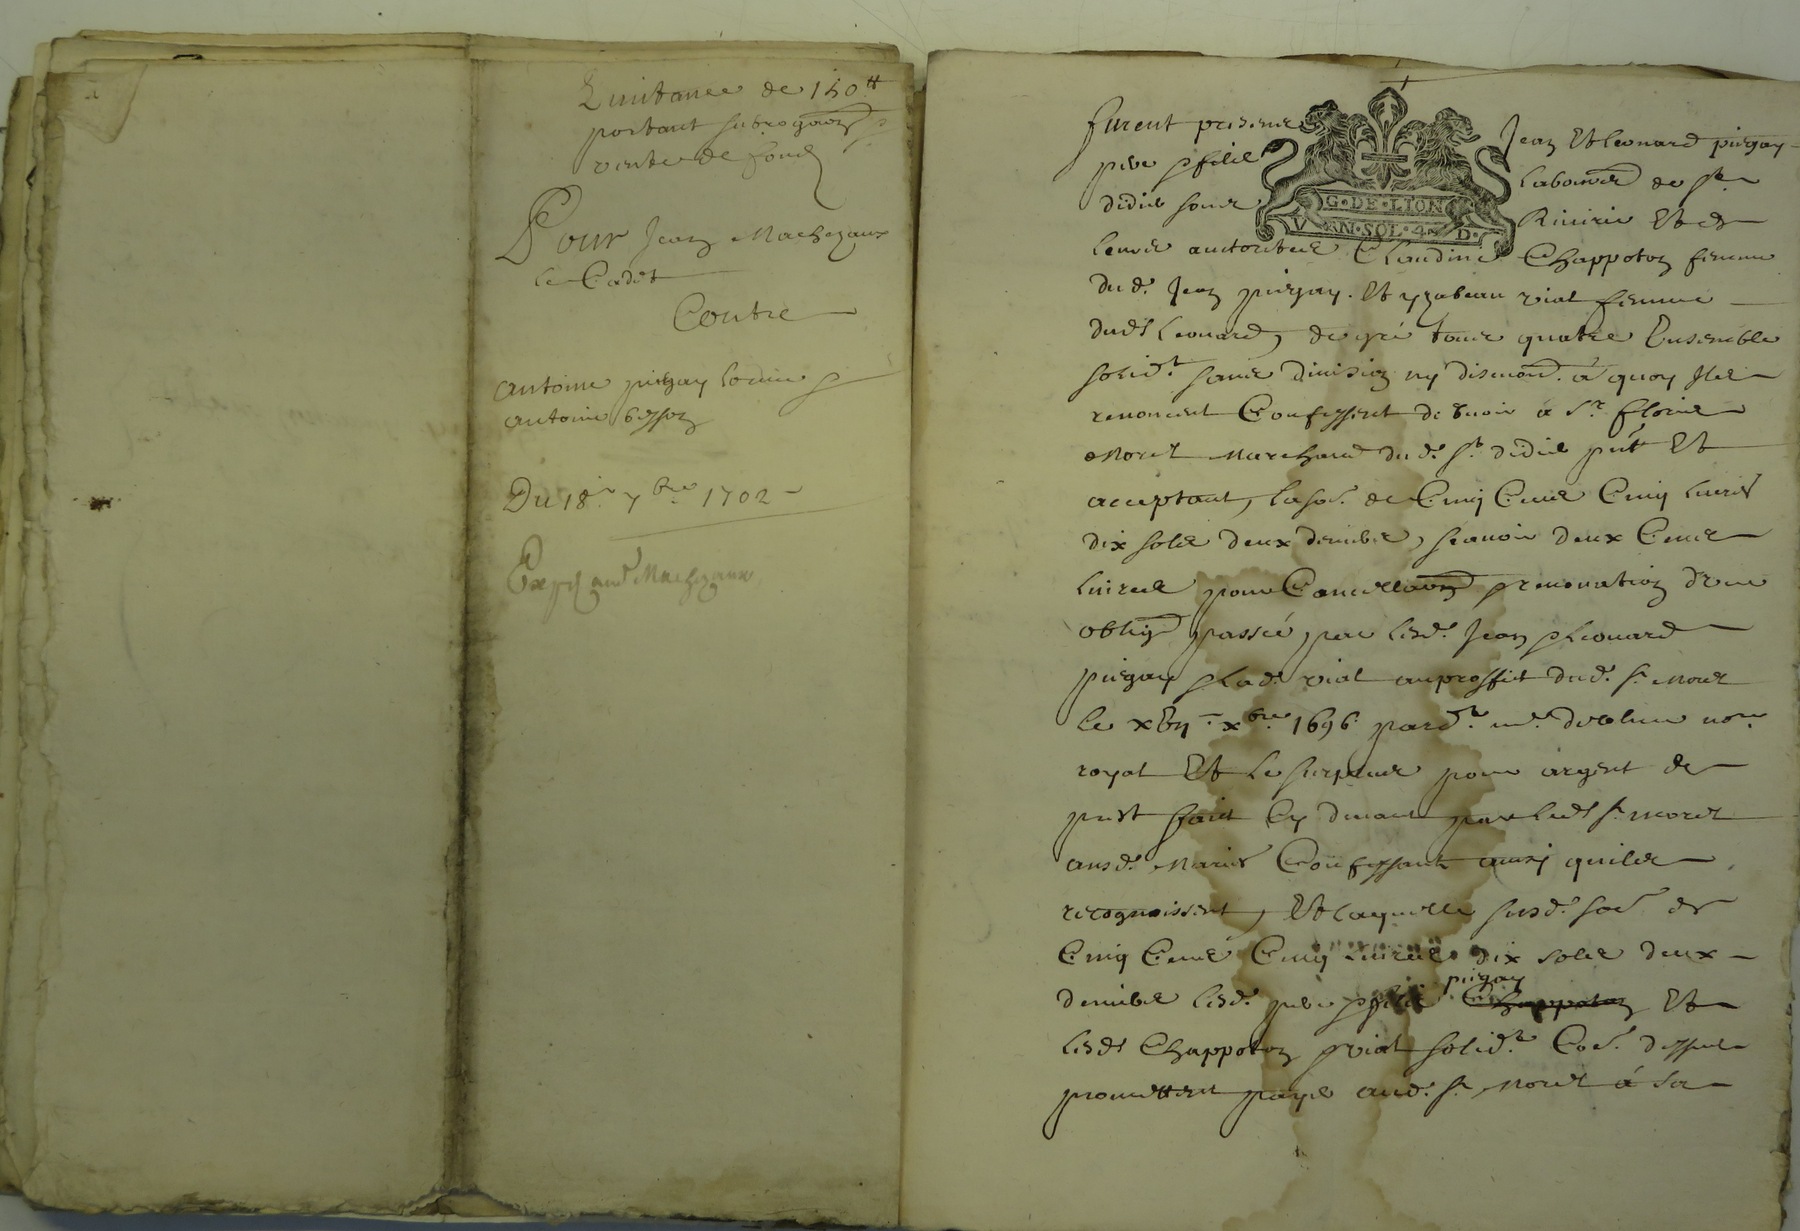 Quittance de 140tt
portant subrogaõn &
vente de fond
Pour Jean Machezaux
le Cadet
Contre
antoine pirgay &
antoine besson
Du 18e 7bre 1702
Furent presens
Jean Et Leonard pirgay
pere & filz
laboure de st
didier soubz
Riuirie Et de
G·DE·LION
V·N·SOL·4·D·
leurs auctorites Claudine Chappoton femme
dud. Jean pirgay. Et yzabeau vial femme
dudt Leonard, de gré tous quatre Ensemble
solidt sans diuision ny discuon. a quoy Ilz
renoncent Confessent debuoir a sr floris
Moret Marchand dud. st didier pnt Et
acceptant, la so. de Cinq Cens Cinq Liures
dix solz deux deniers, scauoir deux Cens
Liures pour Cancellaõn & renouation d'une
oblig passée, par lesd. Jean & Leonard
pirgay & lad. vial au proffit dud. sr Moret
le xbre 1696 pard. me. no.re
royal Et le surplus pour argent de
prest faict Cy deuant par ledt sr moret
ausd. Mariés Confessant ainsi quilz
recognoissent, Et laquelle susd. so. de
Cinq Cens Cinq Liures dix solz deux
deniers lesd. pere & filz pirgay Chappoton Et
lesdt Chappoton & vial solidt Co. dessus
promettent payer aud. sr Moret á sa